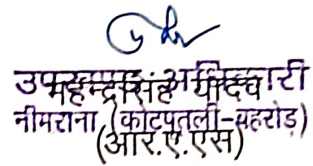 उपखण्ड अधिकारी
महेन्द्र सिंह यादव
नीमराना (कोटपूतली-बहरोड़)
(आर.ए.एस)